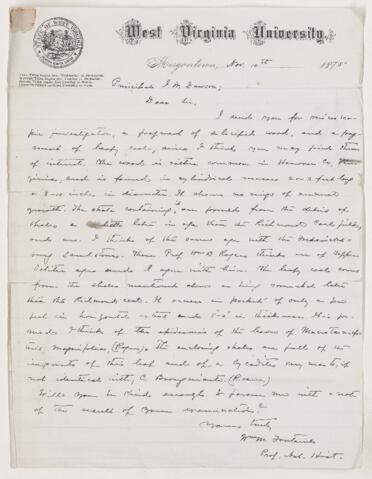 West Virginia University,
Morgantown, Nov. 10th 1875
Principal J. W. Dawson;
Dear Sir,
I send you for micros-
copic investigation, a fragment of silicified wood, and a frag-
ment of leafy coal, since I think you may find them
of interest. The wood is rather common in Hanover Co, Vir-
ginia, and is found in cylindrical masses
8-10 inches in diameter. It shows no rings of annual
growth. The strata containing it are formed from the debris of
shales a little later in age than the Richmond Coal fields
I think of the same age with the Fredericks-
burg Sandstones. These Prof Wm B Rogers thinks are of Upper
Oolitic age and I agree with him. The leafy coal comes
from the shales mentioned above as being somewhat later
than the Richmond coal. It occurs in pockets of only a few
feet in horizontal extent and in thickness. It is for-
med I think of the epidermis of the leaves of Macrotaeniop-
teris magnifolia, (Rogers). The enclosing shales are full of the
imprints of this leaf and of a Cycadites very near to, if
not identical with, C. Brongniarti. (Roemer)
Will you be kind enough to favour me with a note
of the result of your examination?
Yours truly
Wm M Fontaine
Prof. Nat. Hist.